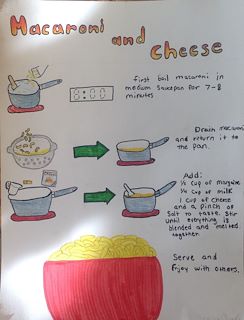 Macaroni
and
Cheese
first boil macaroni in
medium saucepan for 7-8
minutes
8:00
Drain macaroni
and return it to
the pan.
Add:
1/4 cup of margarine
1/4 cup of milk
1 cup of cheese
and a pinch of
Salt to taste. Stir
until everything is
blended and melted
together.
Serve and
Enjoy with others.